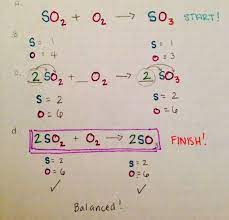 A.
SO₂ + O₂ → SO₃ START!
B.
S = 1 S = 1
O = 4 O = 3
2 SO₂ + _ O₂ → 2 SO₃
S = 2 S = 2
O = 6 O = 6
d
2SO₂ + O₂ → 2SO FINISH!
S = 2 S = 2
O = 6 O = 6
✓ ✓
Balanced!